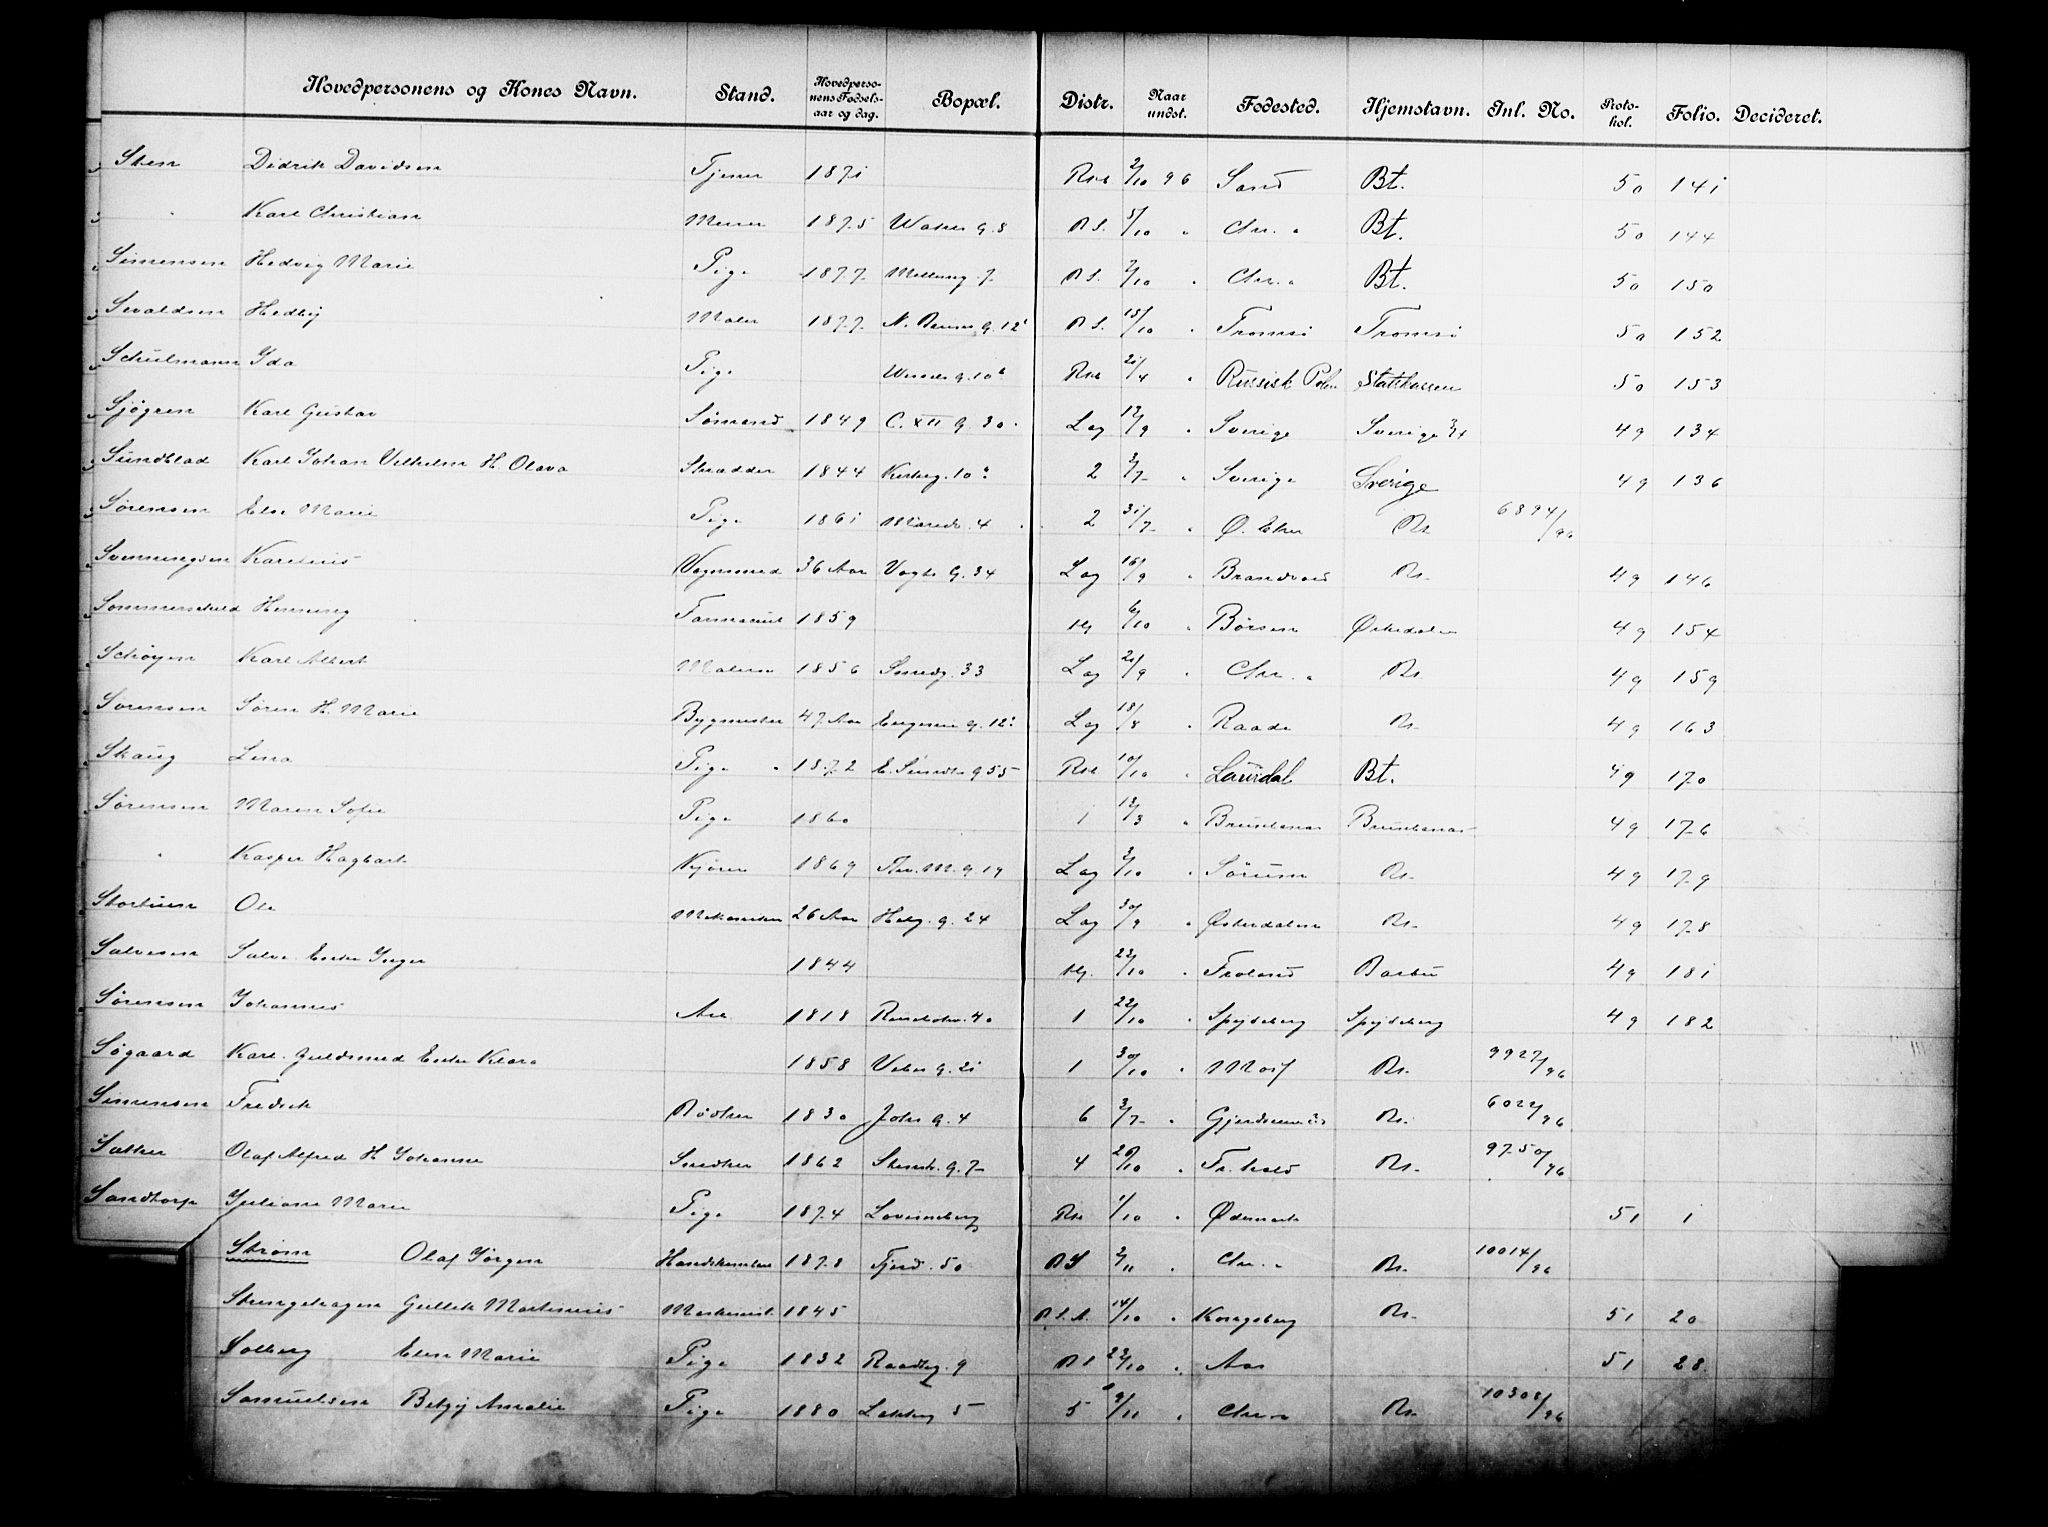 Hovedpersonens og Kones Navn. Stand. Hovedperso-nens Fødsels-aar og dag. Bopæl. Distr. Naar undst. Fødested. Hjemstavn. Inl. No. Proto-kol. Folio. Decideret.
Sten Didrik Davidsen Tjener 1871 Rst 2/10 96 Sand Bt. 50 141
" Karl Christian 1875 Waker g. 8 B S. 5/10 " Chr. a Bt. 50 144
Simensen Hedvig Marie Pige 1877 Mellung. 7 B S. 2/10 " Chr. a Bt. 50 150
Sevaldsen Hedley Maler 1877 B S. 15/10 " Tromsö Tromsö 50 152
Schulmann Ida Pige 21/4 " Russisk Polen Statskassen 50 153
Sjögren Karl Gustav Sömand 1849 C. XII G. 30 Lag 12/9 " Sverige Sverige 49 134
Sundblad Karl Johan Vilhelm H. Olava Skrædder 1844 Kirkeg. 10 2 2/7 " Sverige Sverige 49 136
Sørensen Else Marie Pige 1861 4 2 31/7 " Ø. Eker Bs. 6894/96
Svenningsen Karelius Vognmand 36 Aar Vogts G. 34 Lag 16/9 " Brandvold Bs. 49 146
Sommerschild Henning Farmaceut 1859 6/10 " Börsen Ørkedalen 49 154
Schöyen Karl Albert Malers. 1856 Smedg. 33 Lag 21/9 " Chr. a Bs. 49 159
Sørensen Sören H. Marie Bygmester 47 Aar g. 12 Lag 18/8 " Raade Bs. 49 163
Skaug Lina Pige 1872 E. Sundts g 55 Rst 10/10 " Laurdal Bt. 49 170
Sørensen Maren Sofie Pige 1860 1 12/3 " Brunlanæs Brunlanæs 49 176
" Kasper Hagbart Kjører 1869 Thv. M. g. 19 Lag 2/10 " Sörum Bs. 49 179
Ole 26 Aar Helg. g. 24 Lag 30/9 " Østerdalen Bs. 49 178
Salvesen Salve. Enke Inger 1844 22/10 " Froland Barbu 49 181
Sørensen Johannes Arb. 1818 40 1 22/10 " Spydeberg Spydeberg 49 182
Søgaard Karl. Guldsmed Enke Klara 1858 Veber g. 21 1 30/10 " Moss Bs. 9927/96
Simensen Fredrik Bödker 1830 Johs g. 4 6 2/7 " Gjerdrum Bs. 6022/96
Sæther Olaf Alfred H Johanne Snedker 1862 Stenstr. g. 7 4 20/10 " Fr. hald Bs. 9750/96
Sandtorp Juliane Marie Pige 1874 Lovisenberg Rst 1/10 " Ødemark 51 1
Strøm Olaf Jörgen 1878 Fjerd. 50 B S 2/11 " Chr. a Bs. 10014/96
Stengehagen Gullik Martinius Maskinist 1845 B. S. A. 14/10 " Kongsberg Bs. 51 20
Solberg Elen Marie Pige 1832 Raadhg. 9 B S 22/10 " Aas 51 28
Samuelsen Betzy Amalie Pige 1880 Lakkeg 5 5 9/11 " Chr. a Bs. 10308/96